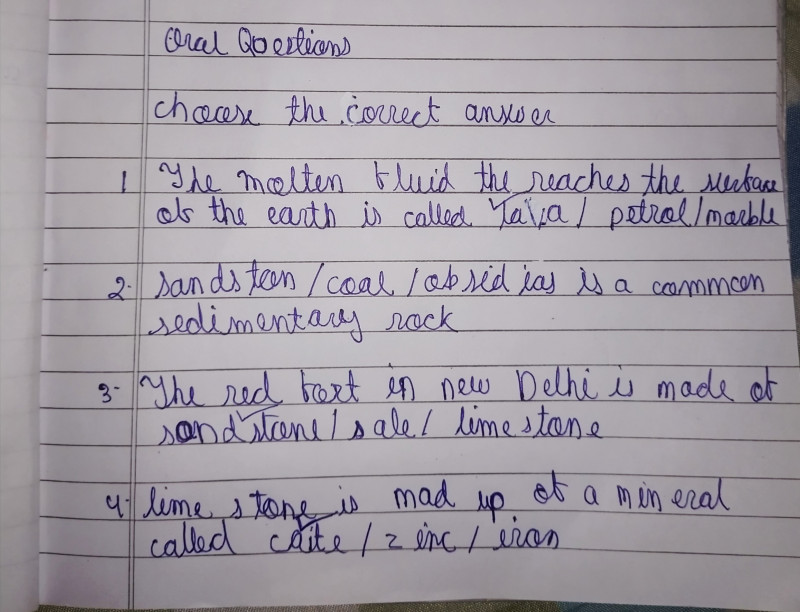 Oral Questions
choose the correct answer
1 The molten fluid the reaches the surface
of the earth is called Lava / petrol / marble
2. sandsteon / coal / obsidias is a common
sedimentary rock
3- The red fort in new Delhi is made of
sandstone / sale / lime stone
4- lime stone is mad up of a mineral
called calite / zinc / iron